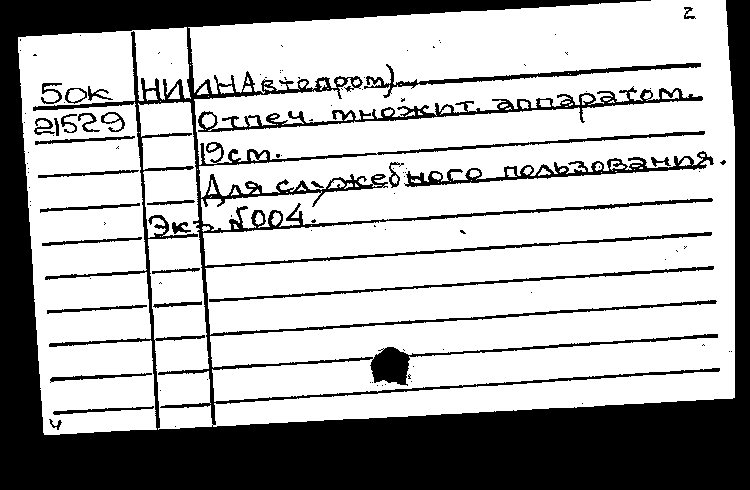 2
5ок НИИНАвтопром)
21529 Отпеч. множит. аппаратом.
19см.
Для служебного пользования.
Экз. №004.